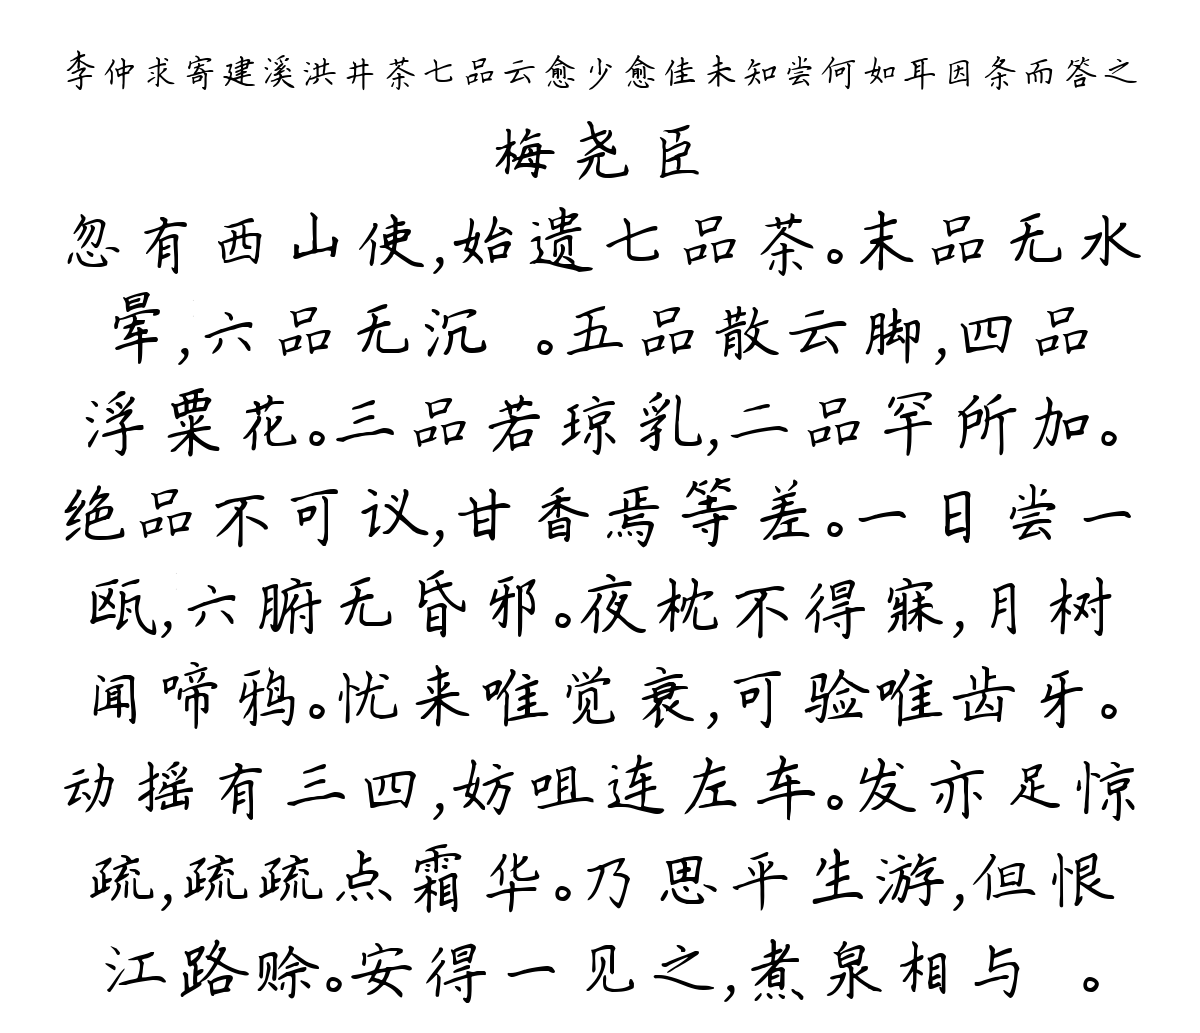 李仲求寄建溪洪井茶七品云愈少愈佳未知尝何如耳因条而答之
梅尧臣
忽有西山使,始遗七品茶。末品无水
晕,六品无沉 。五品散云脚,四品
浮粟花。三品若琼乳,二品罕所加。
绝品不可议,甘香焉等差。一日尝一
瓯,六腑无昏邪。夜枕不得寐,月树
闻啼鸦。忧来唯觉衰,可验唯齿牙。
动摇有三四,妨咀连左车。发亦足惊
疏,疏疏点霜华。乃思平生游,但恨
江路赊。安得一见之,煮泉相与 。